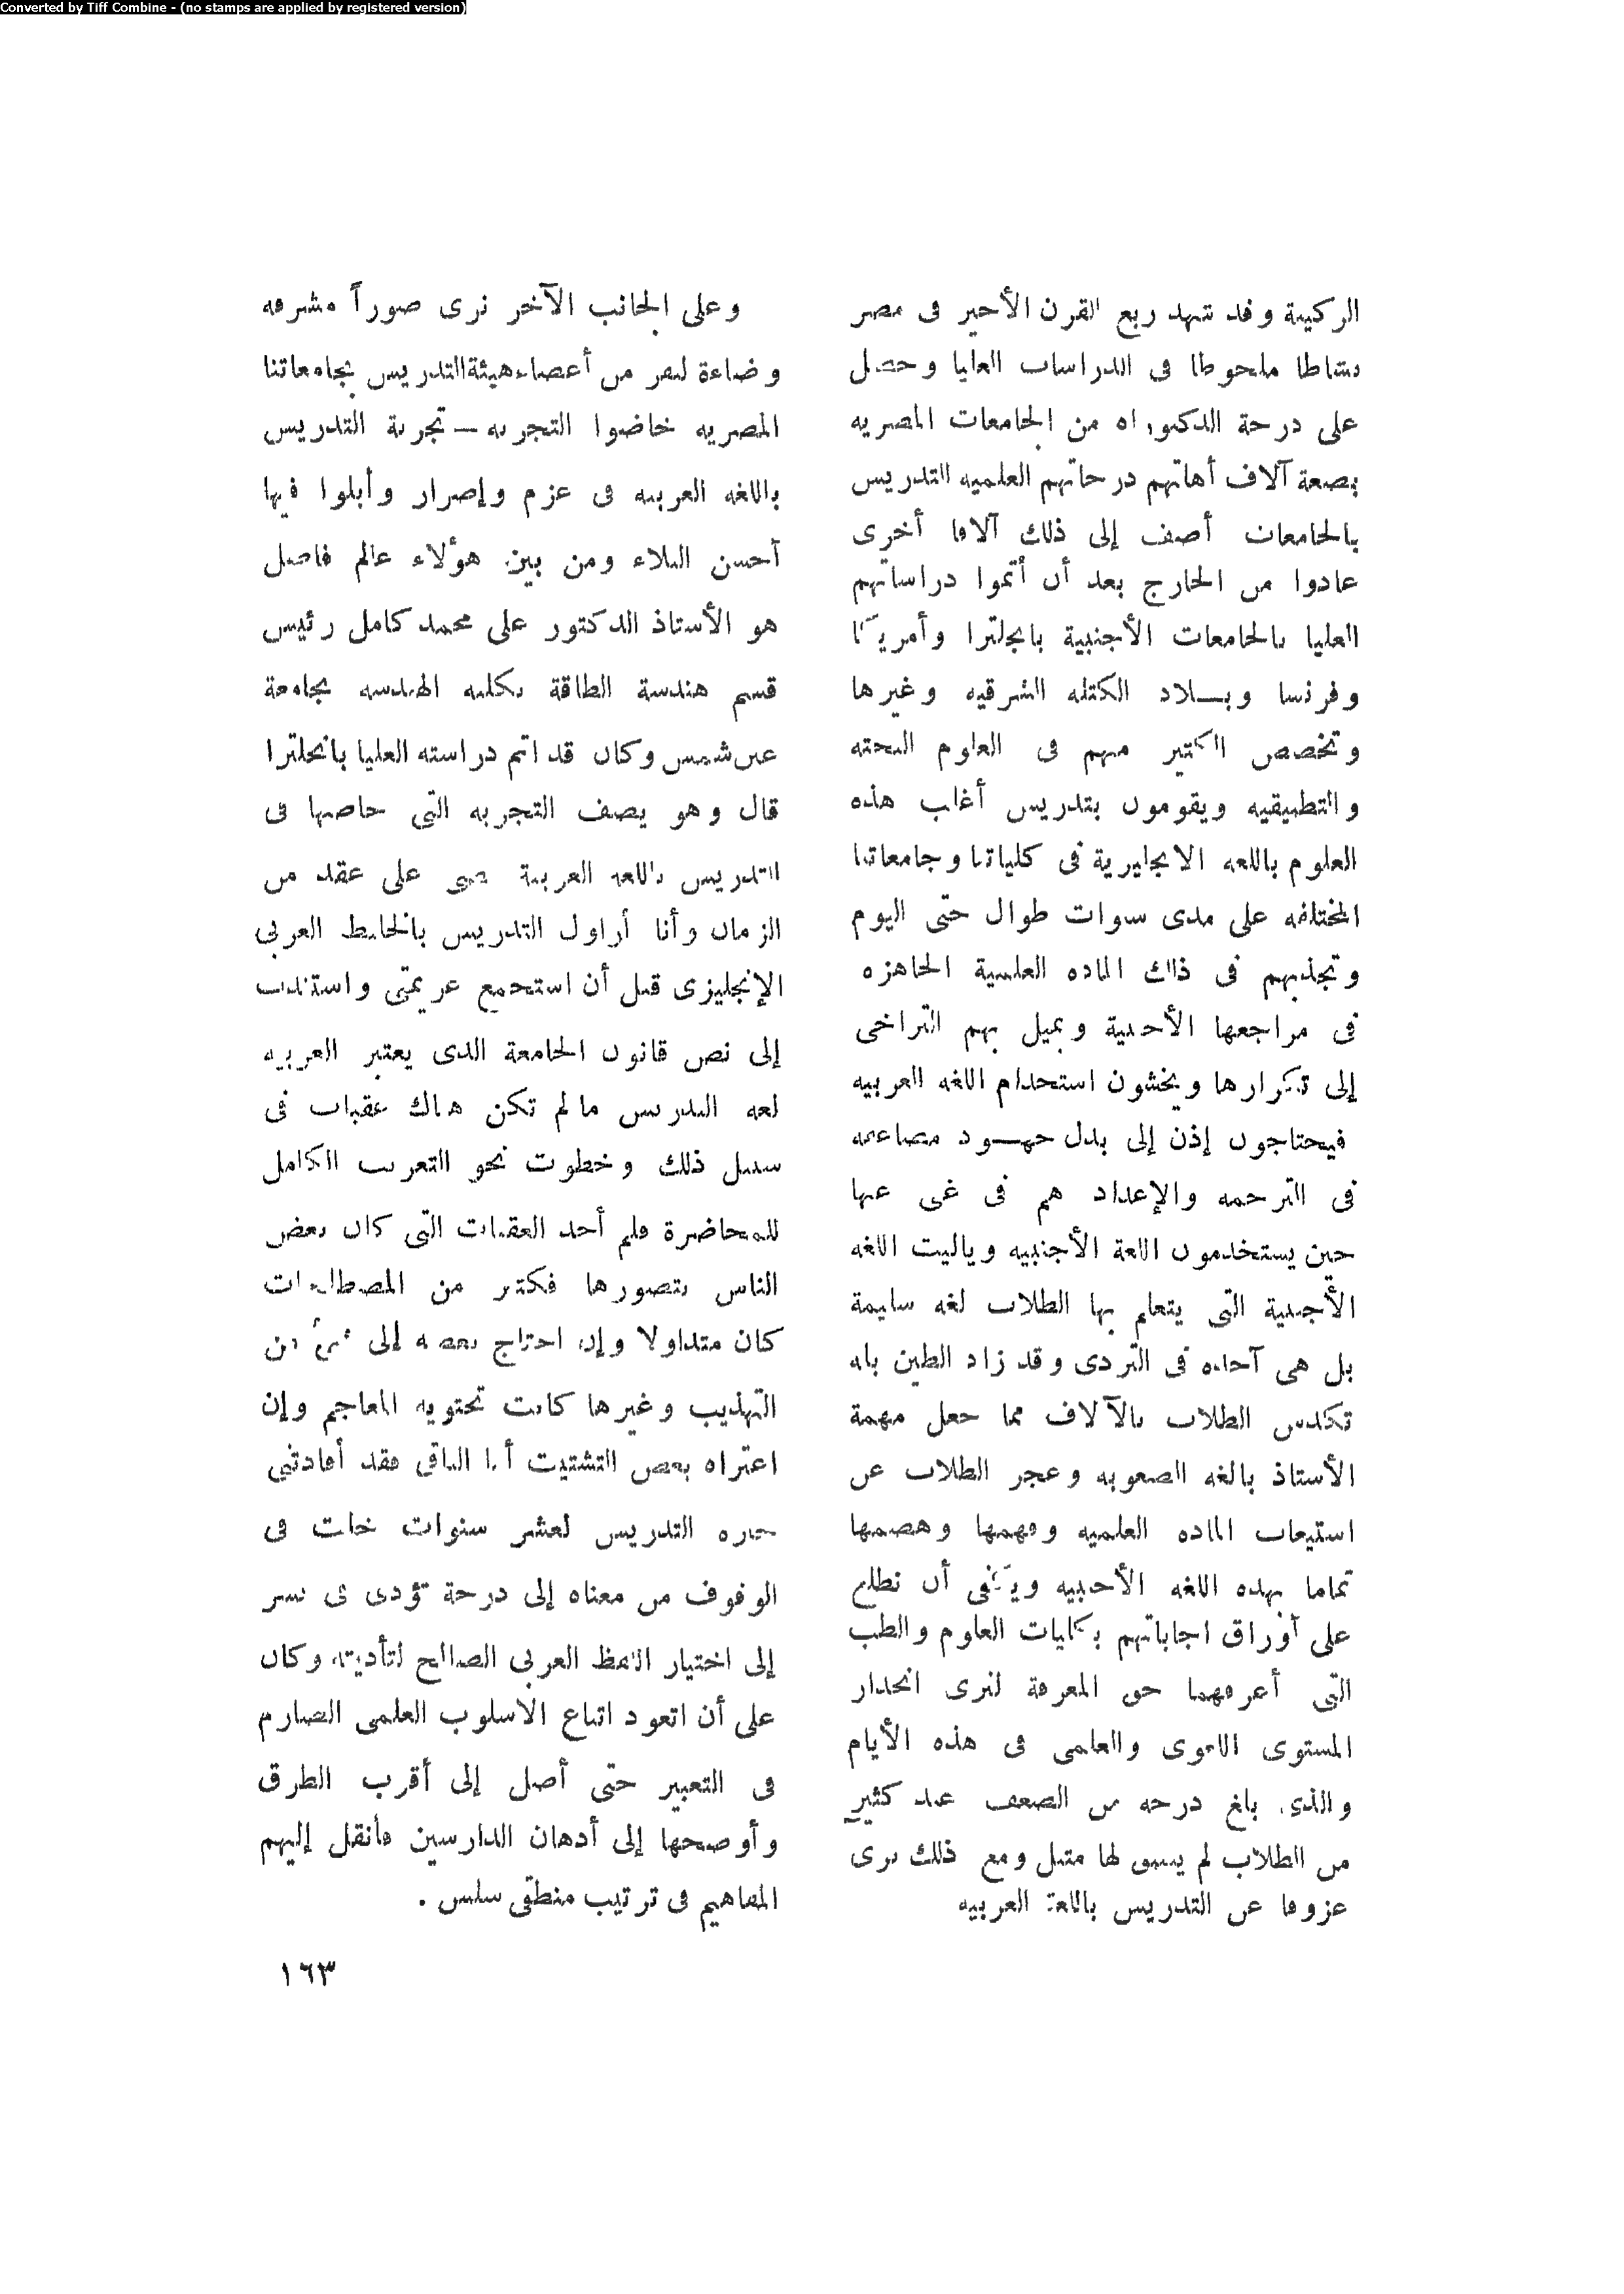 Converted by Tiff Combine - (no stamps are applied by registered version)
الركيبة وقد شهد ربع القرن الأخير فى مصر
نشاطا ملحوظا فى الدراسات العليا وحصل
على درجة الدكتوراه من الجامعات المصرية
بضعة آلاف أهلتهم درجاتهم العلمية التدريس
بالجامعات أضف إلى ذلك آلافا أخرى
عادوا من الخارج بعد أن أتموا دراساتهم
العليا بالجامعات الأجنبية بانجلترا وأمريكا
وفرنسا وبلاد الكتلة الشرقية وغيرها
وتخصص الكثير منهم فى العلوم البحتة
والتطبيقية ويقومون بتدريس أغلب هذه
العلوم باللغة الانجليزية فى كلياتنا وجامعاتنا
المختلفة على مدى سنوات طوال حتى اليوم
وتجذبهم فى ذلك المادة العلمية الجاهزة
فى مراجعها الأجنبية ويميل بهم التراخى
إلى تكرارها ويخشون استخدام اللغة العربية
فيحتاجون إذن إلى بذل جهود مضاعفة
فى الترجمة والإعداد هم فى غنى عنها
حين يستخدمون اللغة الأجنبية وياليت اللغة
الأجنبية التى يتعلم بها الطلاب لغة سليمة
بل هى آخذة فى التردى وقد زاد الطين بلة
تكدس الطلاب بالآلاف مما جعل مهمة
الأستاذ بالغة الصعوبة وعجز الطلاب عن
استيعاب المادة العلمية وفهمها وهضمها
تماما بهذه اللغة الأجنبية ويكفى أن نطلع
على أوراق اجاباتهم بكليات العلوم والطب
التى أعرفهما حق المعرفة لنرى انحدار
المستوى اللغوى والعلمى فى هذه الأيام
والذى بلغ درجة من الضعف عند كثير
من الطلاب لم يسبق لها مثيل ومع ذلك نرى
عزوفا عن التدريس باللغة العربية
وعلى الجانب الآخر نرى صوراً مشرقة
وضاءة لنفر من أعضاء هيئة التدريس بجامعاتنا
المصرية خاضوا التجربة — تجربة التدريس
باللغة العربية فى عزم وإصرار وأبلوا فيها
أحسن البلاء ومن بين هؤلاء عالم فاضل
هو الأستاذ الدكتور على محمد كامل رئيس
قسم هندسة الطاقة بكلية الهندسة بجامعة
عين شمس وكان قد اتم دراسته العليا بانجلترا
قال وهو يصف التجربة التى خاضها فى
التدريس باللغة العربية مضى على عقد من
الزمان وأنا أزاول التدريس بالخليط العربى
الإنجليزى قبل أن استجمع عزيمتى واستندت
إلى نص قانون الجامعة الذى يعتبر العربية
لغة التدريس مالم تكن هناك عقبات فى
سبيل ذلك وخطوت نحو التعريب الكامل
للمحاضرة فلم أجد العقبات التى كان بعض
الناس يتصورها فكثير من المصطلحات
كان متداولا وإن احتاج بعضه إلى شىء من
التهذيب وغيرها كانت تحتويه المعاجم وإن
اعتراه بعض التشتيت أما الباقى فقد أفادتنى
خبرة التدريس لعشر سنوات خلت فى
الوقوف من معناه إلى درجة تؤدى فى يسر
إلى اختيار اللفظ العربى الصالح لتأديته وكان
على أن اتعود اتباع الاسلوب العلمى الصارم
فى التعبير حتى أصل إلى أقرب الطرق
وأوضحها إلى أذهان الدارسين فأنقل إليهم
المفاهيم فى ترتيب منطقى سلس .
١٦٣